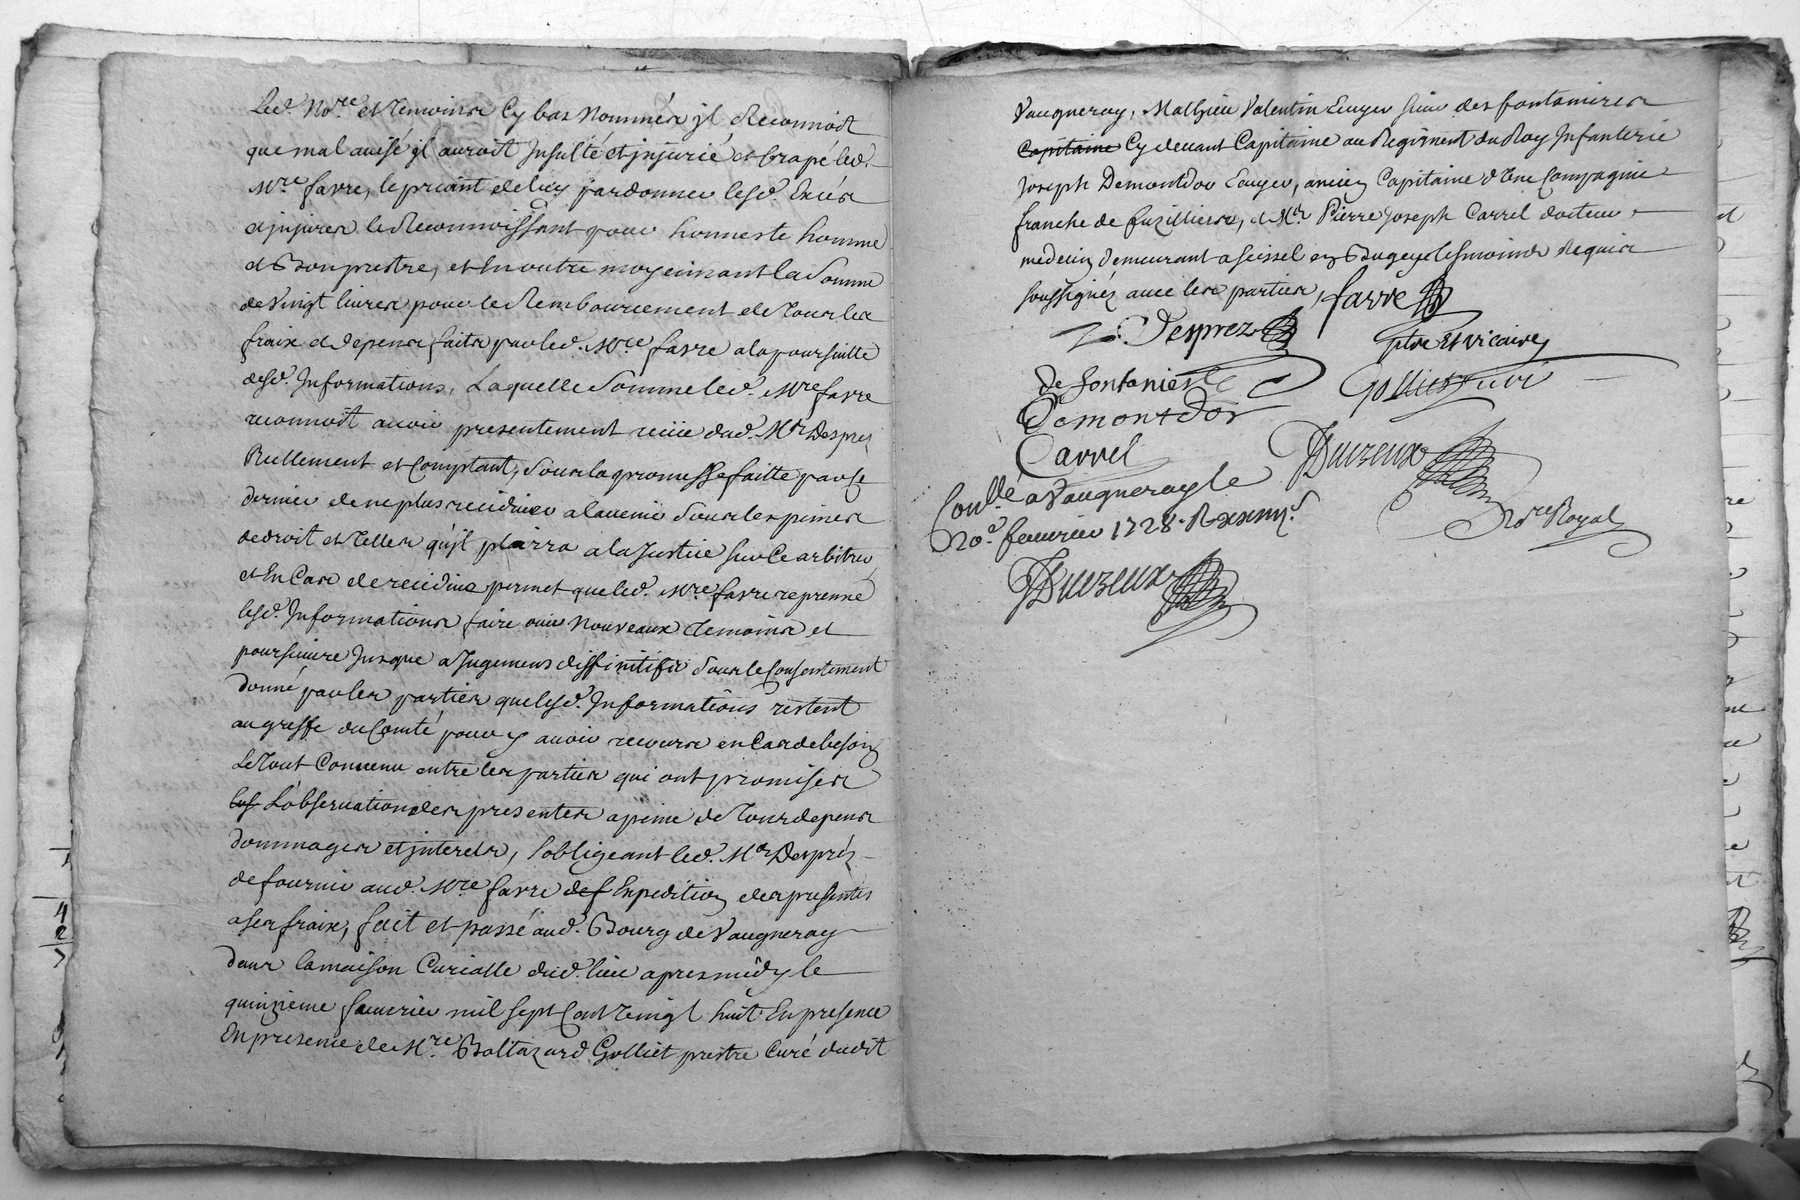 Led. No.re et temoins Cy bas Nommés jl Reconnoit
que mal avisé jl auroit Insulté et injurié et frapé led.
M.re favre, le priant de luy pardonner lesd. Excés
et jnjures le Reconnoissant pour honneste homme
et Bon prestre, et En outre moyennant la Somme
de Vingt livres pour le Remboursement de Tous les
fraix et depens faits par led. M.re favre a la poursuitte
desd. Informations, Laquelle Somme led. M.re favre
reconnoit avoir presentement reçüe dud. M.r Desprez
Rüellement et Comptant, Sous la promesse faitte par se
dernier de ne plus recidiver a lavenir Sous les peines
de droit et telles qu'jl plaira a la Justice sur Ce arbitrer,
et En Cas de recidive permet que led. M.re favre reprenne
lesd. Informations faire ouir Nouveaux temoins et
poursuivre Jusque a Jugemens diffinitifs Sous le Consentement
donné par les parties que lesd. Informations restent
au greffe du Comté pour y avoir recours en Cas de besoin
Le Tout Convenu entre les parties qui ont promis
L'observation des presentes a peine de Tous depens
dommages et jnterets, S'obligeant led. M.r Desprez
de fournir aud. M.re favre Expedition des presentes
a ses fraix, fait et passé aud. Bourg de Vaugneray
dans la maison Curialle dud. lieu apres midy le
quinzieme feuvrier mil sept Cent Vingt huit En presence
En presence de M.re Baltazard Golliet prestre Curé dudit
Vaugneray, Mathieu Valentin Ecuyer Sieur des fontanieres
Capitaine Cy devant Capitaine au Regiment du Roy Infanterie
Joseph Demontdor Ecuyer, ancien Capitaine d'Une Compagnie
franche de fuzilliers, et M.r Pierre Joseph Carrel docteur
medecin demeurant a Seissel en Bugey temoins Requis
soussignéz avec les parties, favre
Desprez
ptre Et vicaire
De fontanieres
Golliet Curé
Demontdor
Carrel
Duezeux
Con.llé a Vaugneray le
20.e feuvrier 1728.
No.re Royal
Duezeux